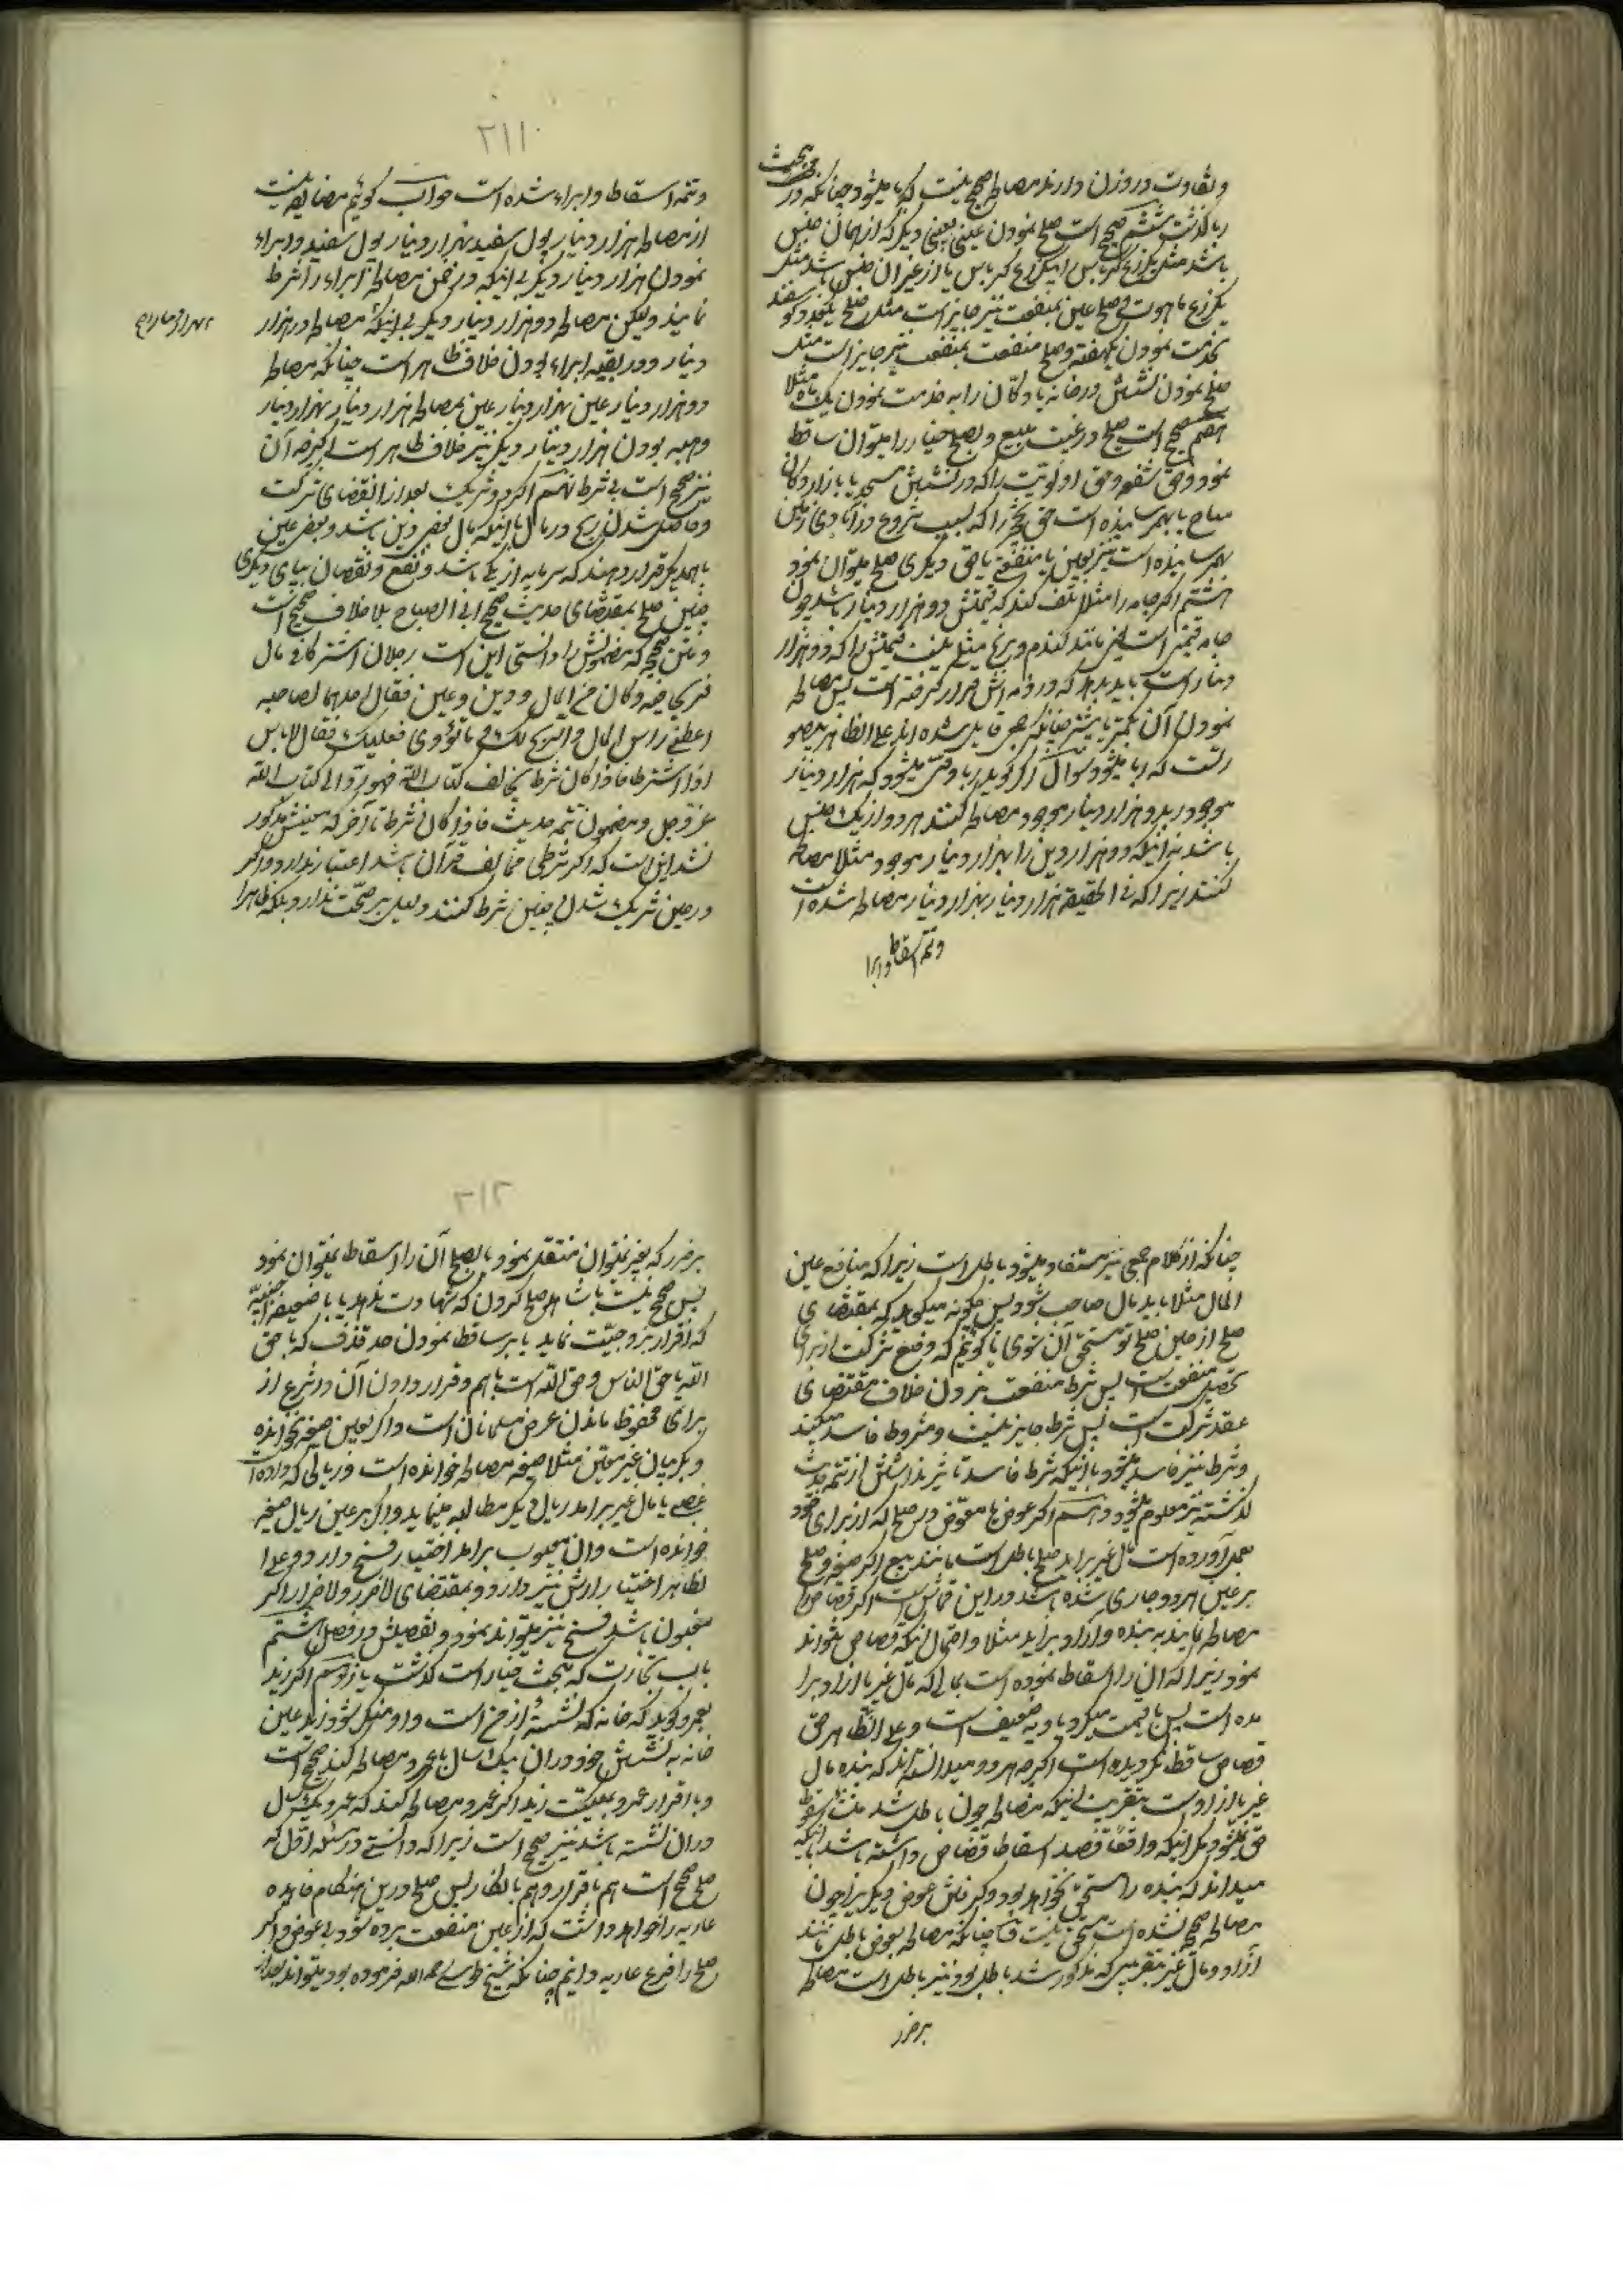 و تفاوت در وزن دارند مصالحه صحیح نیست که ربا میشود چنانکه در مبحث
ربا گذشت ششم صحیح است صلح نمودن عینی بعینی دیگر که از همان جنس
باشد مثل یکزرع کرباس یا از غیر آن جنس باشد مثل
یکزرع ماهوت و صلح عین بمنفعت نیز جایز است مثل صلح
بخدمت نمودن یکهفته و صلح منفعت بمنفعت نیز جایز است مثل
صلح نمودن نشستن در خانه یا دکان را به خدمت نمودن یکماه مثلا
هفتم صحیح است صلح در عین مبیع و بصلح خیار را میتوان ساقط
نمود و حق شفعه و حق اولویت را که در نشستن مسجد یا بازار و دکان
مباح بهمرسانیده است حق تحجیر را که بسبب شروع در آبادی زمین
بهمرسانیده است نیز بعین یا منفعت یا حق دیگری صلح میتوان نمود
هشتم اگر جامه را مثلا تلف کند که قیمتش دو هزار دینار باشد چون
جامه قیمتی است یعنی مانند گندم و برنج مثلی نیست قیمتش را که دو هزار
دینار است باید بدهد که در ذمه اش قرار گرفته است پس مصالحه
نمودن آن بکمتر یا بیشتر چنانکه جمعی قایل شده اند علی الظاهر
که ربا میشود سؤال اگر گوید ربا وقتی میشود که هزار دینار
موجود بدو هزار دینار موجود مصالحه کنند هر دو از یک جنس
باشد نه اینکه دو هزار دین را بهزار دینار موجود مثلا مصالحه
کنند زیرا که فی الحقیقه هزار دینار بهزار دینار مصالحه شده است
و تتمه اسقاط و ابرا
۲۱۱
و تتمه اسقاط و ابراء شده است جواب گوئیم مضایقه نیست
از مصالحه هزار دینار پول سفید بهزار دینار پول سفید و ابراء
نمودن هزار دینار دیگر بی اینکه در ضمن مصالحه ابراء را شرط
نمایند ولیکن مصالحه دو هزار دینار دیگر بی اینکه مصالحه در هزار
دینار و در بقیه ابراء بودن خلاف ظاهر است چنانکه مصالحه
دو هزار دینار عین بهزار دینار عین بمصالحه هزار دینار بهزار دینار
و هبه بودن هزار دینار دیگر نیز خلاف ظاهر است اگر چه آن
نیز صحیح است بی شرط نهم اگر دو شریک بعد از انقضای شرکت
و حاصل شدن ربح در مال با اینکه مال بعضی دین باشد و بعضی عین
با همدیگر قرار دهند که سرمایه از یکی باشد و نفع و نقصان بپای دیگری
چنین صلح بمقتضای حدیث صحیح ابی الصباح بلا خلاف صحیح است
و متن صحیحه که مضمونش را دانستی این است رجلان اشترکا فی مال
فربحا فیه و کان من المال دین و عین فقال احدهما لصاحبه
اعطنی راس المال و الربح لک و ما توی فعلیک فقال لا باس
اذا اشترطا فاذا کان شرط یخالف کتاب الله فهو رد الی کتاب الله
عز و جل و مضمون تتمه حدیث فاذا کان شرط تا آخر که معنیش مذکور
نشد این است که اگر شرطی مخالف قرآن باشد اعتبار ندارد و اگر
در حین شریک شدن چنین شرط کنند دلیل بر صحت ندارد بلکه ظاهرا
چنانکه از کلام جمعی نیز مستفاد میشود باطل است زیرا که منافع عین
المال مثلا باید مال صاحب شود پس چگونه میگوید که بمقتضای
صلح از حین صلح تو مستحق آن شوی یا گوئیم که وضع شرکت از برای
تحصیل منفعت است پس شرط منفعت نبردن خلاف مقتضای
عقد شرکت است پس شرط جایز نیست و مشروط فاسد میکند
و شرط نیز فاسد میشود با اینکه شرط فاسد تاثیر نداشتن از تتمه حدیث
گذشته نیز معلوم میشود دهم اگر عوض یا معوض در صلح که از برای خود
بعمل آورده است مال غیر برآید صلح باطل است مانند بیع اگر صیغه صلح
بر عین هر دو جاری شده باشد و در این قماش است اگر قصاص را
مصالحه نمایند به بنده و آزاد برآید مثلا و احتمال اینکه قصاص نتواند
نمود زیرا که آن را اسقاط نموده است بمالی که مال غیر یا آزاد برآ
مده است پس یا قیمت میگیرد یا دیه ضعیف است و علی الظاهر حق
قصاص ساقط نگردیده است اگر چه هر دو میدانسته اند که بنده مال
غیر یا آزاد است بتقریب اینکه مصالحه چون باطل شد منشأ سقوط
حق نمیشود مگر اینکه واقعا قصد اسقاط قصاص داشته باشد با اینکه
میداند که بنده را مستحق نخواهد بود و گرفتن عوض دیگر نیز چون
مصالحه صحیح نشده است مستحق نیست چنانکه مصالحه بعوض باطل مانند
آزاد و مال غیر بتقریبی که مذکور شد باطل بود نیز باطل است مصالحه
بر ضرر
۲۱۲
بر ضرر که بغیر نمیتوان منتقل نمود یا بصلح آن را اسقاط نمیتوان نمود
پس صحیح نیست با شاهد صلح کردن که شهادت ندهد یا با ضعیفه اجنبیه
که اقرار بزوجیت نماید یا بر ساقط نمودن حد قذف که یا حق
الله یا حق الناس و حق الله است با هم و قرار دادن آن در شرع از
برای محفوظ ماندن عرض مسلمانان است و اگر بعین صیغه نخوانده
و بکرمان غیر معین مثلا صیغه مصالحه خوانده است و ریالی که داده است
غصبی یا مال غیر برآمد ریال دیگر مطالبه مینماید و اگر بر عین ریال صیغه
خوانده است و آن معیوب برآمد اختیار فسخ دارد و علی ا
لظاهر اختیار ارش نیز دارد و بمقتضای لا ضرر و لا ضرار اگر
مغبون باشد فسخ نیز میتواند نمود و تفصیلش در فصل هشتم
باب تجارت که مبحث خیار است گذشت یازدهم اگر زید
بعمرو گوید که خانه که نشسته از من است و او منکر شود و زید عین
خانه به نشستن خود در آن یک سال با عمرو مصالحه کند صحیح است
و با اقرار عمرو بملکیت زید اگر عمرو مصالحه کند که عمرو یک سال
در آن نشسته باشد نیز صحیح است زیرا که دانستی در مسئله اول که
صلح صحیح است هم با اقرار و هم با انکار پس صلح در این هنگام فایده
عاریه را خواهد داشت که از عین منفعت برده شود بی عوض و اگر
صلح را فرع عاریه دانیم چنانکه شیخ طوسی رحمه الله فرموده بود میتواند بعد از